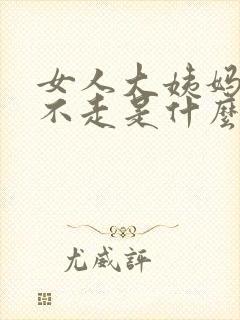 女人大姨妈
不走是什麼
尤威評